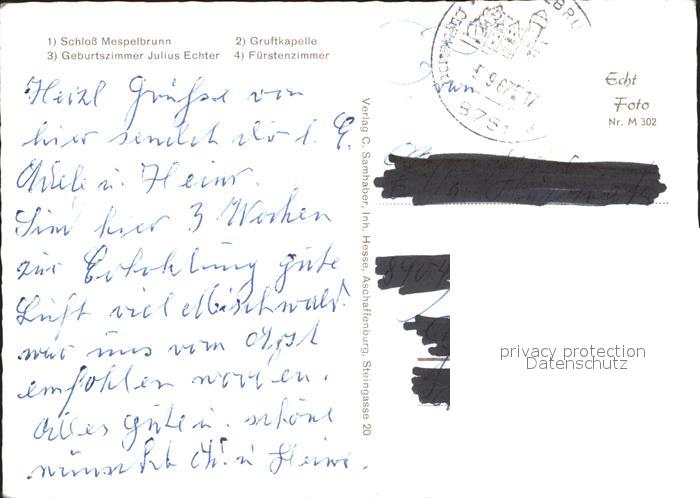 1) Schloß Mespelbrunn 2) Gruftkapelle
3) Geburtszimmer Julius Echter 4) Fürstenzimmer
Herzl Grüsse von
hier sendet
u. Heinr.
Sind hier 3 Wochen
zur Erhohlung gute
Luft viel Mischwald.
war uns vom Arzt
empfohlen worden.
Alles gute u. schöne
wünscht u Heinr.
Verlag C. Samhaber, Inh. Hesse, Aschaffenburg, Steingasse 20
8751
Echt
Foto
Nr. M 302
privacy protection
Datenschutz